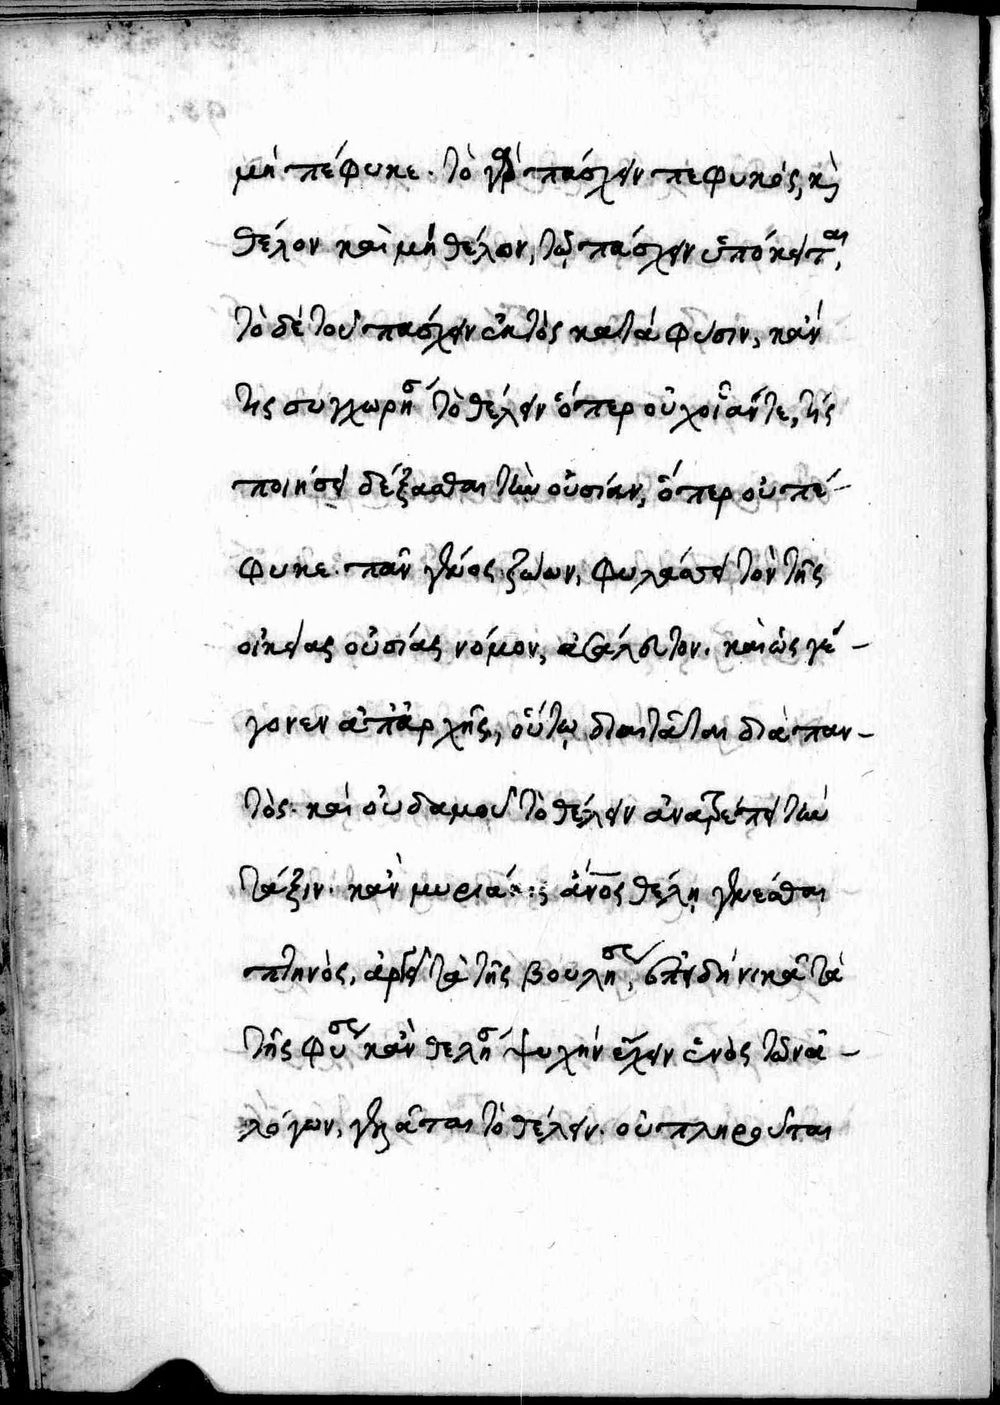 μὴ πέφυκε. τὸ γὰρ πάσχειν πεφυκὸς, κὶ
θέλον καὶ μὴ θέλον, τῶ πάσχειν ὑπόκειται,
τὸ δὲ τοῦ πάσχειν ἐκτὸς κατὰ φύσιν, κἄν
τις συγχωρήσῃ τὸ θέλειν ὅπερ οὐχ οἷάντε, τίς
ποιήσει δέξασθαι τὴν οὐσίαν, ὅπερ οὐ πέ-
φυκε. πᾶν γένος ζώων, φυλάσσει τὸν τῆς
οἰκείας οὐσίας νόμον, ἀσάλευτον. καὶ ὡς γέ-
γονεν ἀπαρχῆς, οὕτω διαιτᾶται διὰ παν-
τὸς. καὶ οὐδαμοῦ τὸ θέλειν ἀνατρέπει τὴν
τάξιν. κἂν μυριάκις ἄνος θέλῃ γενέσθαι
πτηνὸς, ἀργεῖ τὰ τῆς βουλήσεως, ἐπειδὴ νικᾶ τὰ
τῆς φύσεως κἂν θελήσῃ ψυχὴν ἔχειν ἑνὸς τῶν ἀ-
λόγων, γελᾶται τὸ θέλειν. οὐ πληροῦται